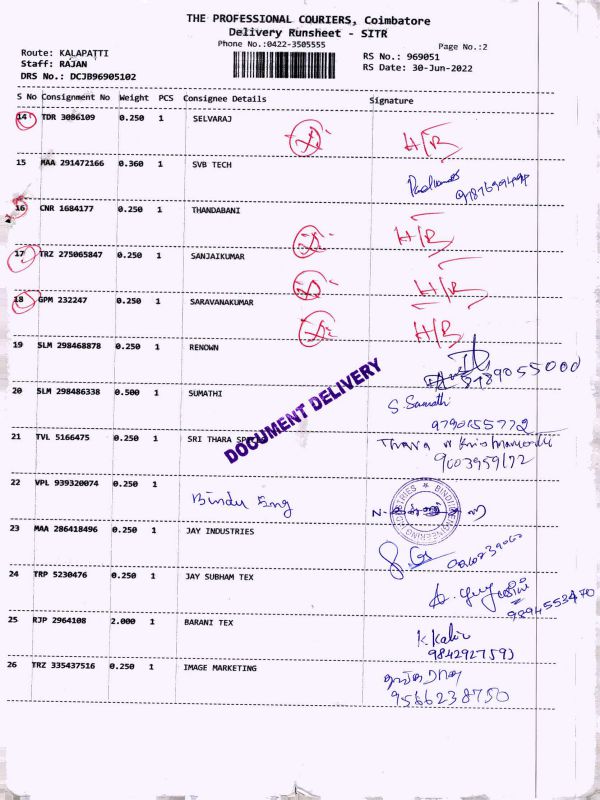 THE PROFESSIONAL COURIERS, Coimbatore
Delivery Runsheet - SITR
Phone No.:0422-3505555
Page No.:2
Route: KALAPATTI
Staff: RAJAN
DRS No.: DCJB96905102
RS No.: 969051
RS Date: 30-Jun-2022
S No Consignment No Weight PCS Consignee Details Signature
14 TDR 3086109 0.250 1 SELVARAJ H/B
15 MAA 291472166 0.360 1 SVB TECH
16 CNR 1684177 0.250 1 THANDABANI H/B
17 TRZ 275065847 0.250 1 SANJAIKUMAR H/B
18 GPM 232247 0.250 1 SARAVANAKUMAR H/B
19 SLM 298468878 0.250 1 RENOWN
20 SLM 298486338 0.500 1 SUMATHI S. Sumathi
DOCUMENT DELIVERY
21 TVL 5166475 0.250 1 SRI THARA Thara
9003959172
22 VPL 939320074 0.250 1 Bindu Eng
BINDU ENGINEERING INDUSTRIES
23 MAA 286418496 0.250 1 JAY INDUSTRIES
24 TRP 5230476 0.250 1 JAY SUBHAM TEX
9894553470
25 RJP 2964108 2.000 1 BARANI TEX K.Kabir
9842927593
26 TRZ 335437516 0.250 1 IMAGE MARKETING
9566238750